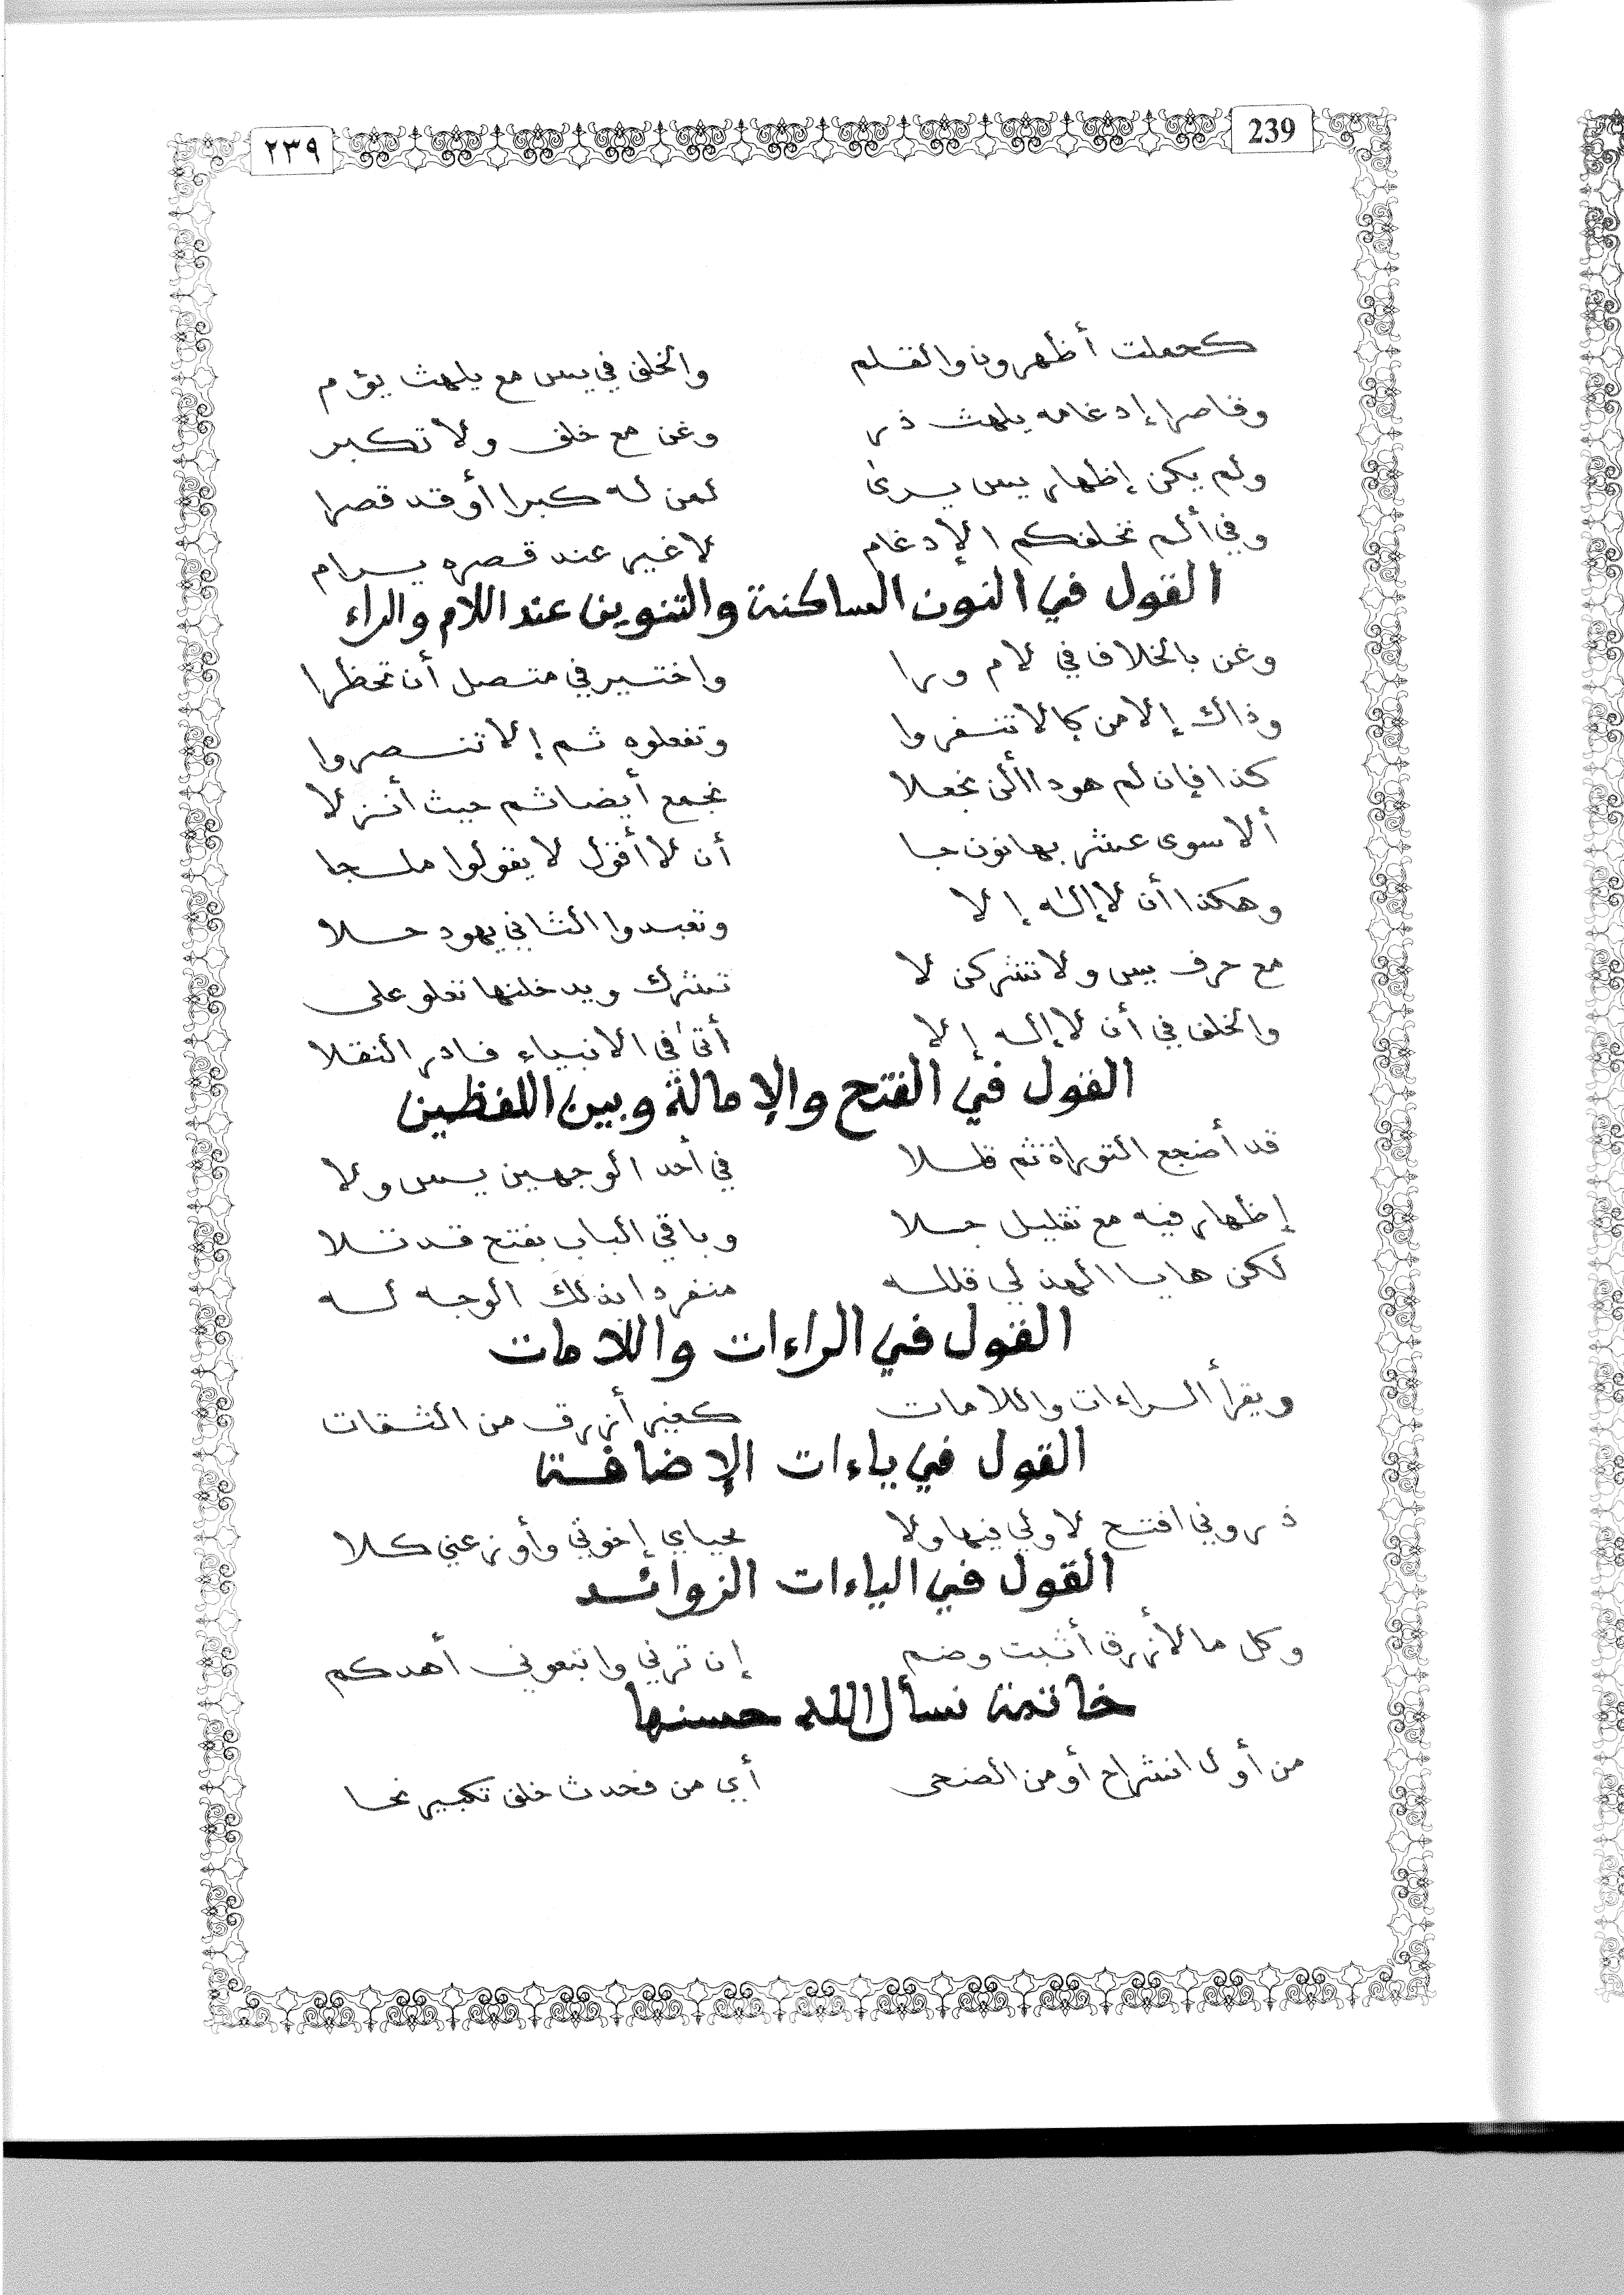 ٢٣٩ 239
كحملت أظهرون والقلم والخلف في يس مع يلهث يؤم
وقاصرا إدغامه يلهث ذر وغن مع خلف ولا تكبر
ولم يكن إظهار يس يرى لمن له كبرا أو قد قصرا
وفي ألم نخلقكم الإدغام لا غير عند قصره يرام
القول في النون الساكنة والتنوين عند اللام والراء
وغن بالخلاف في لام ورا واختير في متصل أن تحظرا
وذاك إلا من كإلا تنفروا وتفعلوه ثم إلا تنصروا
كذا فإن لم هود األن نجعلا نجمع أيضا ثم حيث أنزلا
ألا سوى عشر بها نون جا أن لا أقول لا يقولوا ملجا
وهكذا أن لا إله إلا وتعبدوا الثاني يهود حلا
مع حرف يس ولا تشركن لا تشرك ويدخلنها تعلو على
والخلف في أن لا إله إلا أتى في الانبياء فادر النقلا
القول في الفتح والإمالة وبين اللفظين
قد أضجع التوراة ثم قللا في أحد الوجهين يس ولا
إظهار فيه مع تقليل جلا وباقي الباب بفتح قد تلا
لكن ها يا الهذلي قلله منفردا بذلك الوجه له
القول في الراءات واللامات
ويقرأ الراءات واللامات كغير أزرق من الثقات
القول في ياءات الإضافة
ذروني افتح لا ولي فيها ولا محياي إخوتي وأوزعني كلا
القول في الياءات الزوائد
وكل ما لأزرق أثبت وضم إن ترني واتبعوني أهدكم
خاتمة نسأل الله حسنها
من أول انشراح أو من الضحى أي من فحدث خلف تكبير نحا